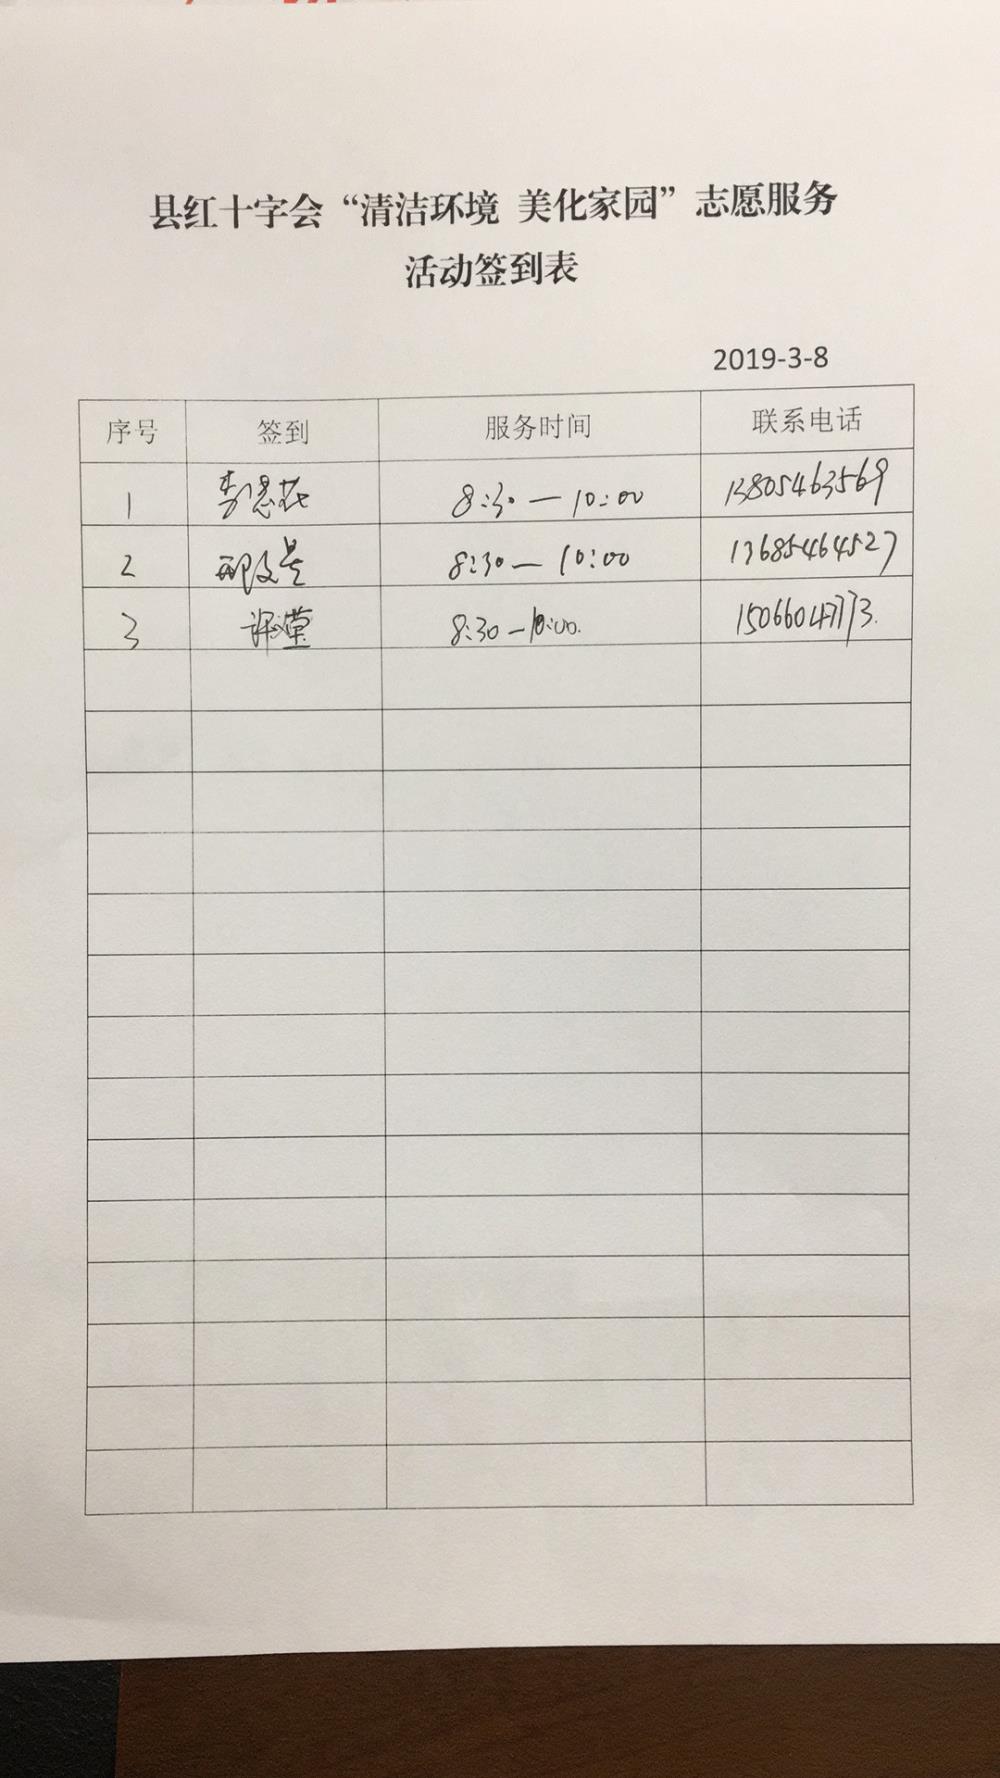 县红十字会“清洁环境 美化家园”志愿服务
活动签到表
2019-3-8
序号 签到 服务时间 联系电话
1 李恩花 8:30—10:00 13805463569
2 8:30—10:00 13685464527
3 8:30—10:00. 15066047773.